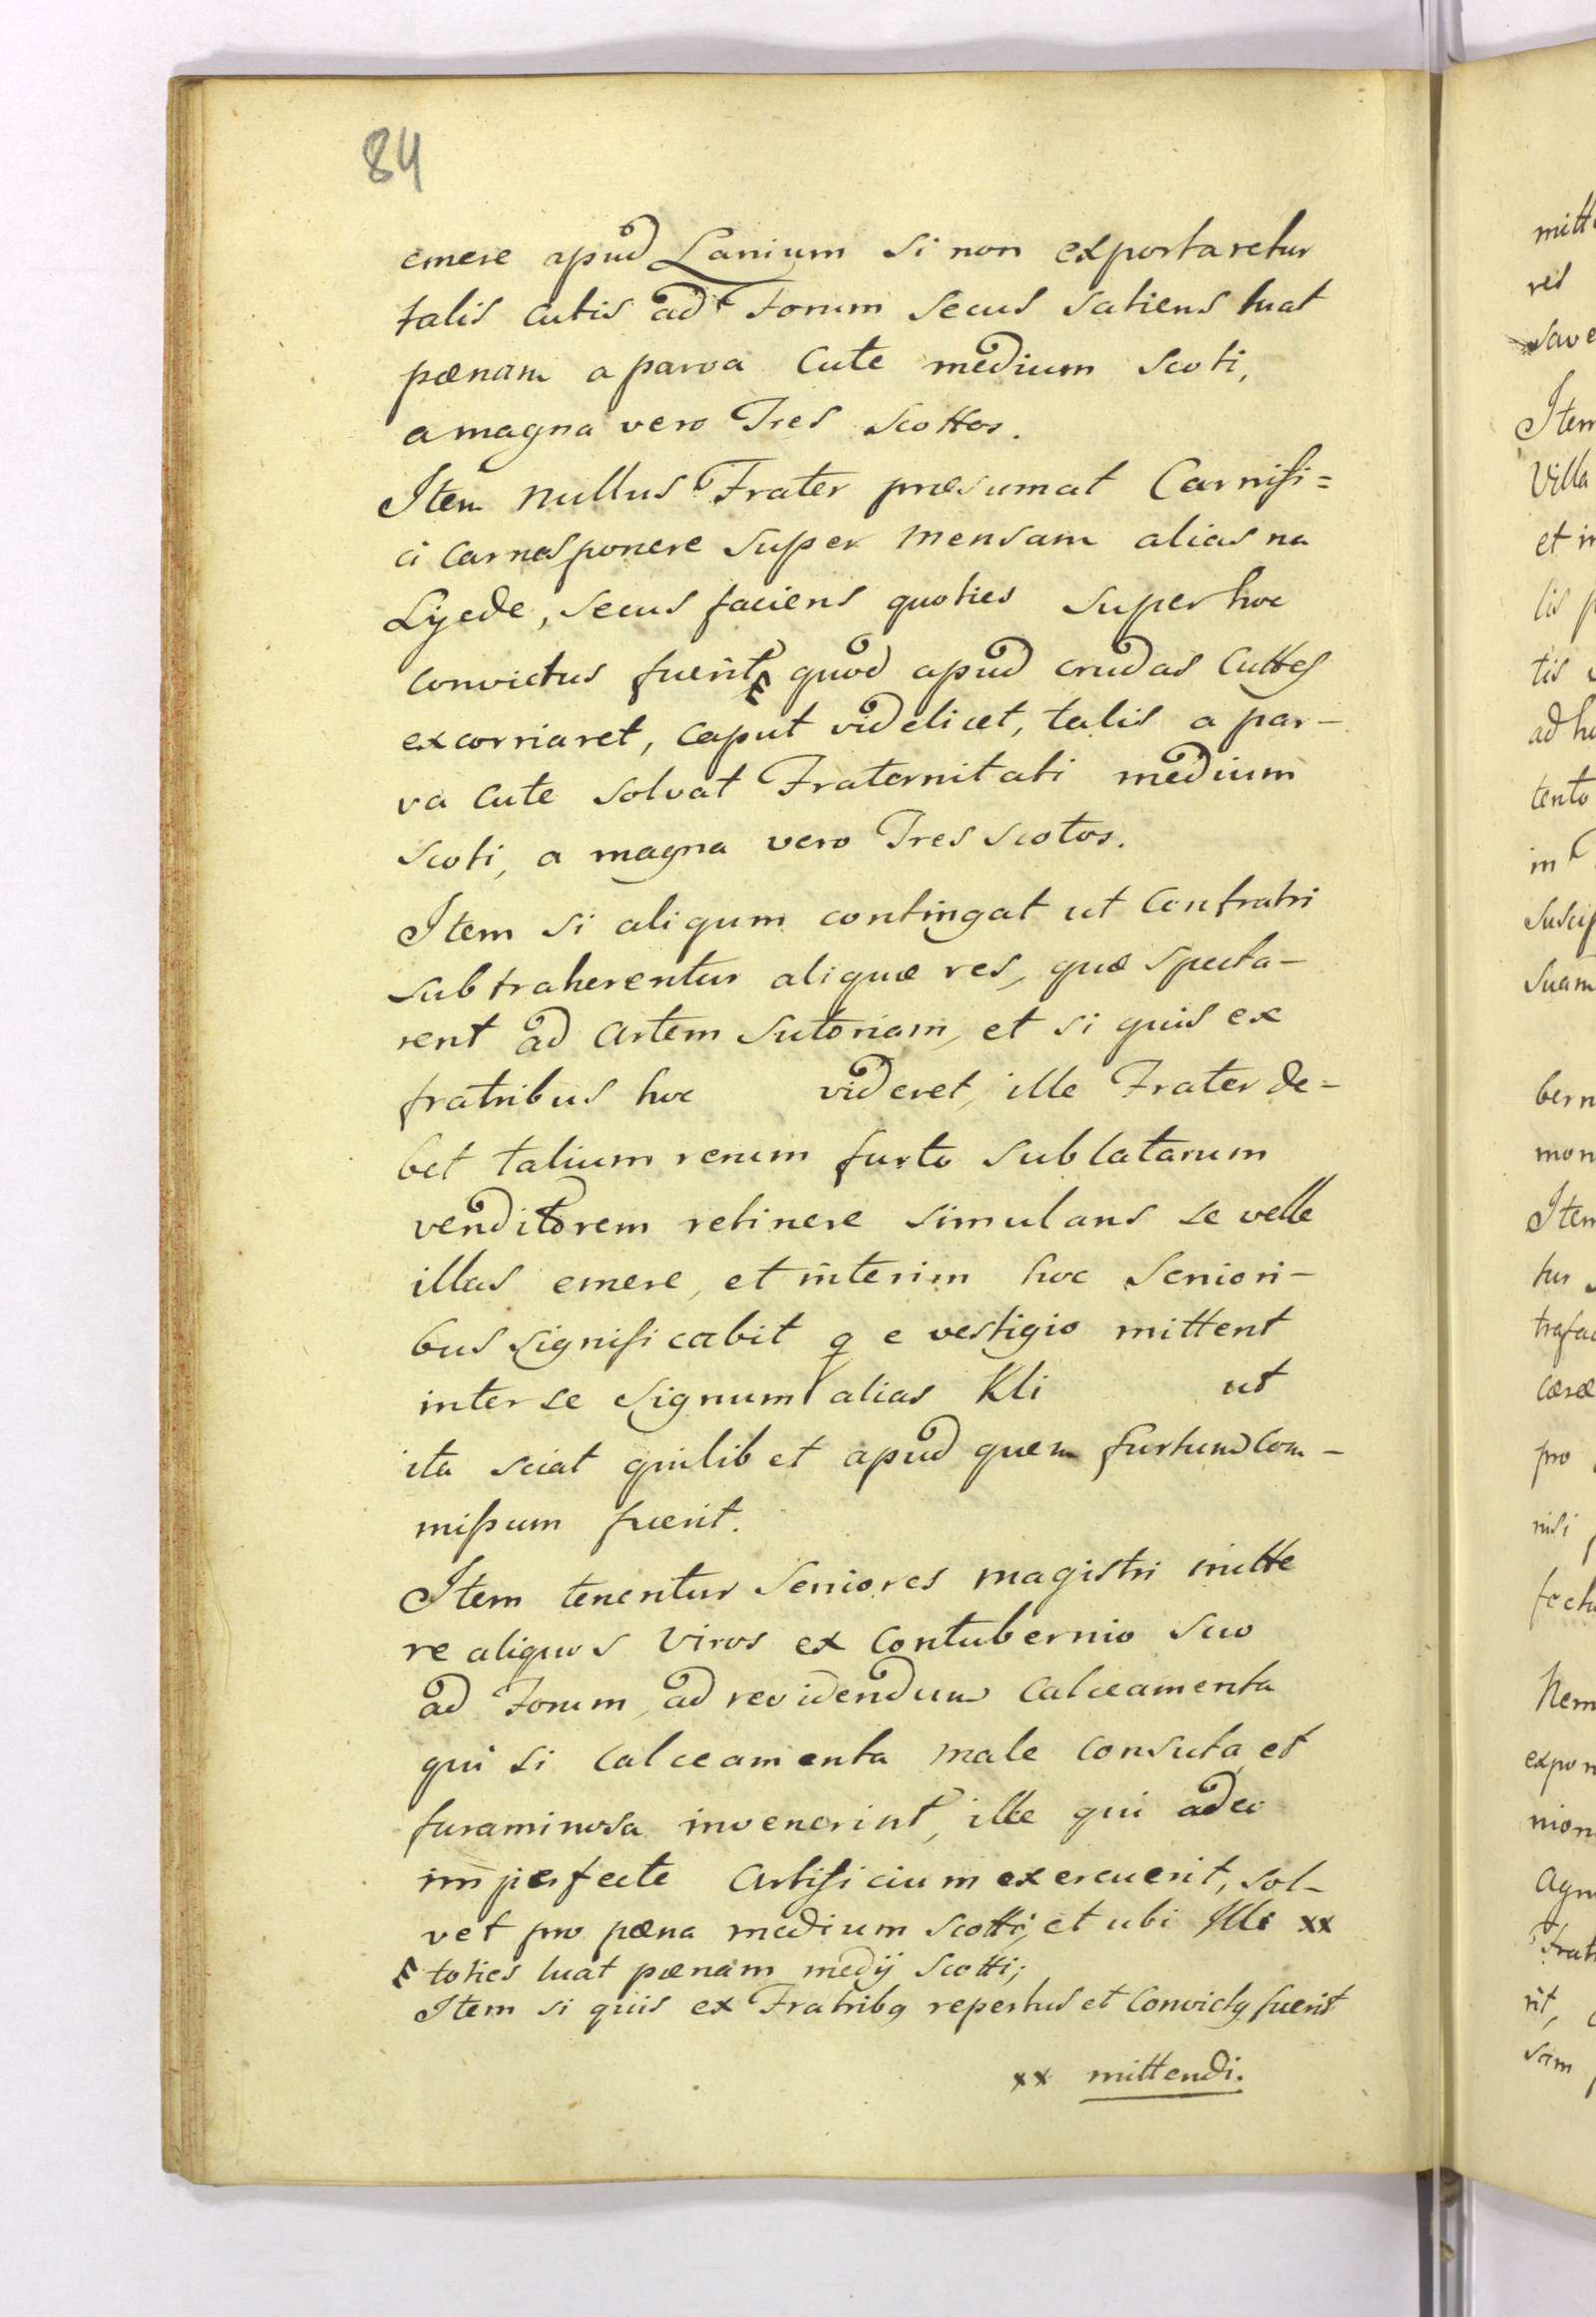 84
emere apud Lanium si non exportaretur
talis cutis ad Forum secus satiens luat
pœnam a parva Cute medium Scoti,
a magna vero Tres Scottos.
Item nullus Frater præsumat Carnifi=
ci carnes ponere super mensam alias na
Lijede, secus faciens quoties super hoc
convictus fuerit E quod apud crudas Cuttes
excorriaret, caput videlicet, talis a par-
va cute solvat Fraternitati medium
Scoti, a magna vero Tres Scotos.
Item si aliqum contingat ut Confratri
subtraherentur aliquæ res, quæ specta-
rent ad artem Sutoriam, et si quis ex
fratribus hoc videret, ille Frater de=
bet talium rerum furto sublatarum
venditorem retinere simulans se velle
illas emere, et interim hoc seniori-
bus significabit q e vestigio mittent
inter se signum alias Kli ut
ita sciat quilibet apud quem furtum com-
mißum fuerit.
Item tenentur Seniores magistri mitte
re aliquos viros ex Contubernio suo
ad Forum, ad revidendum calceamenta
qui si calceamenta male consuta et
furaminosa invenerint, ille qui adeo
imperfecte artificium exercuerit, sol-
vet pro pœna medium Scotti, et ubi Illi xx
E toties luat pœnam medij Scotti;
Item si quis ex Fratribq repertus et Convictq fuerit
xx mittendi.
mitt
res
save
Item
Villa
et in
lis p
tis
ad h
tento
in
suscip
suam
bern
mon
Item
tur
trafac
cæræ
pro
nisi
fect
Nem
expon
nion
agn
Frat
rit,
sam